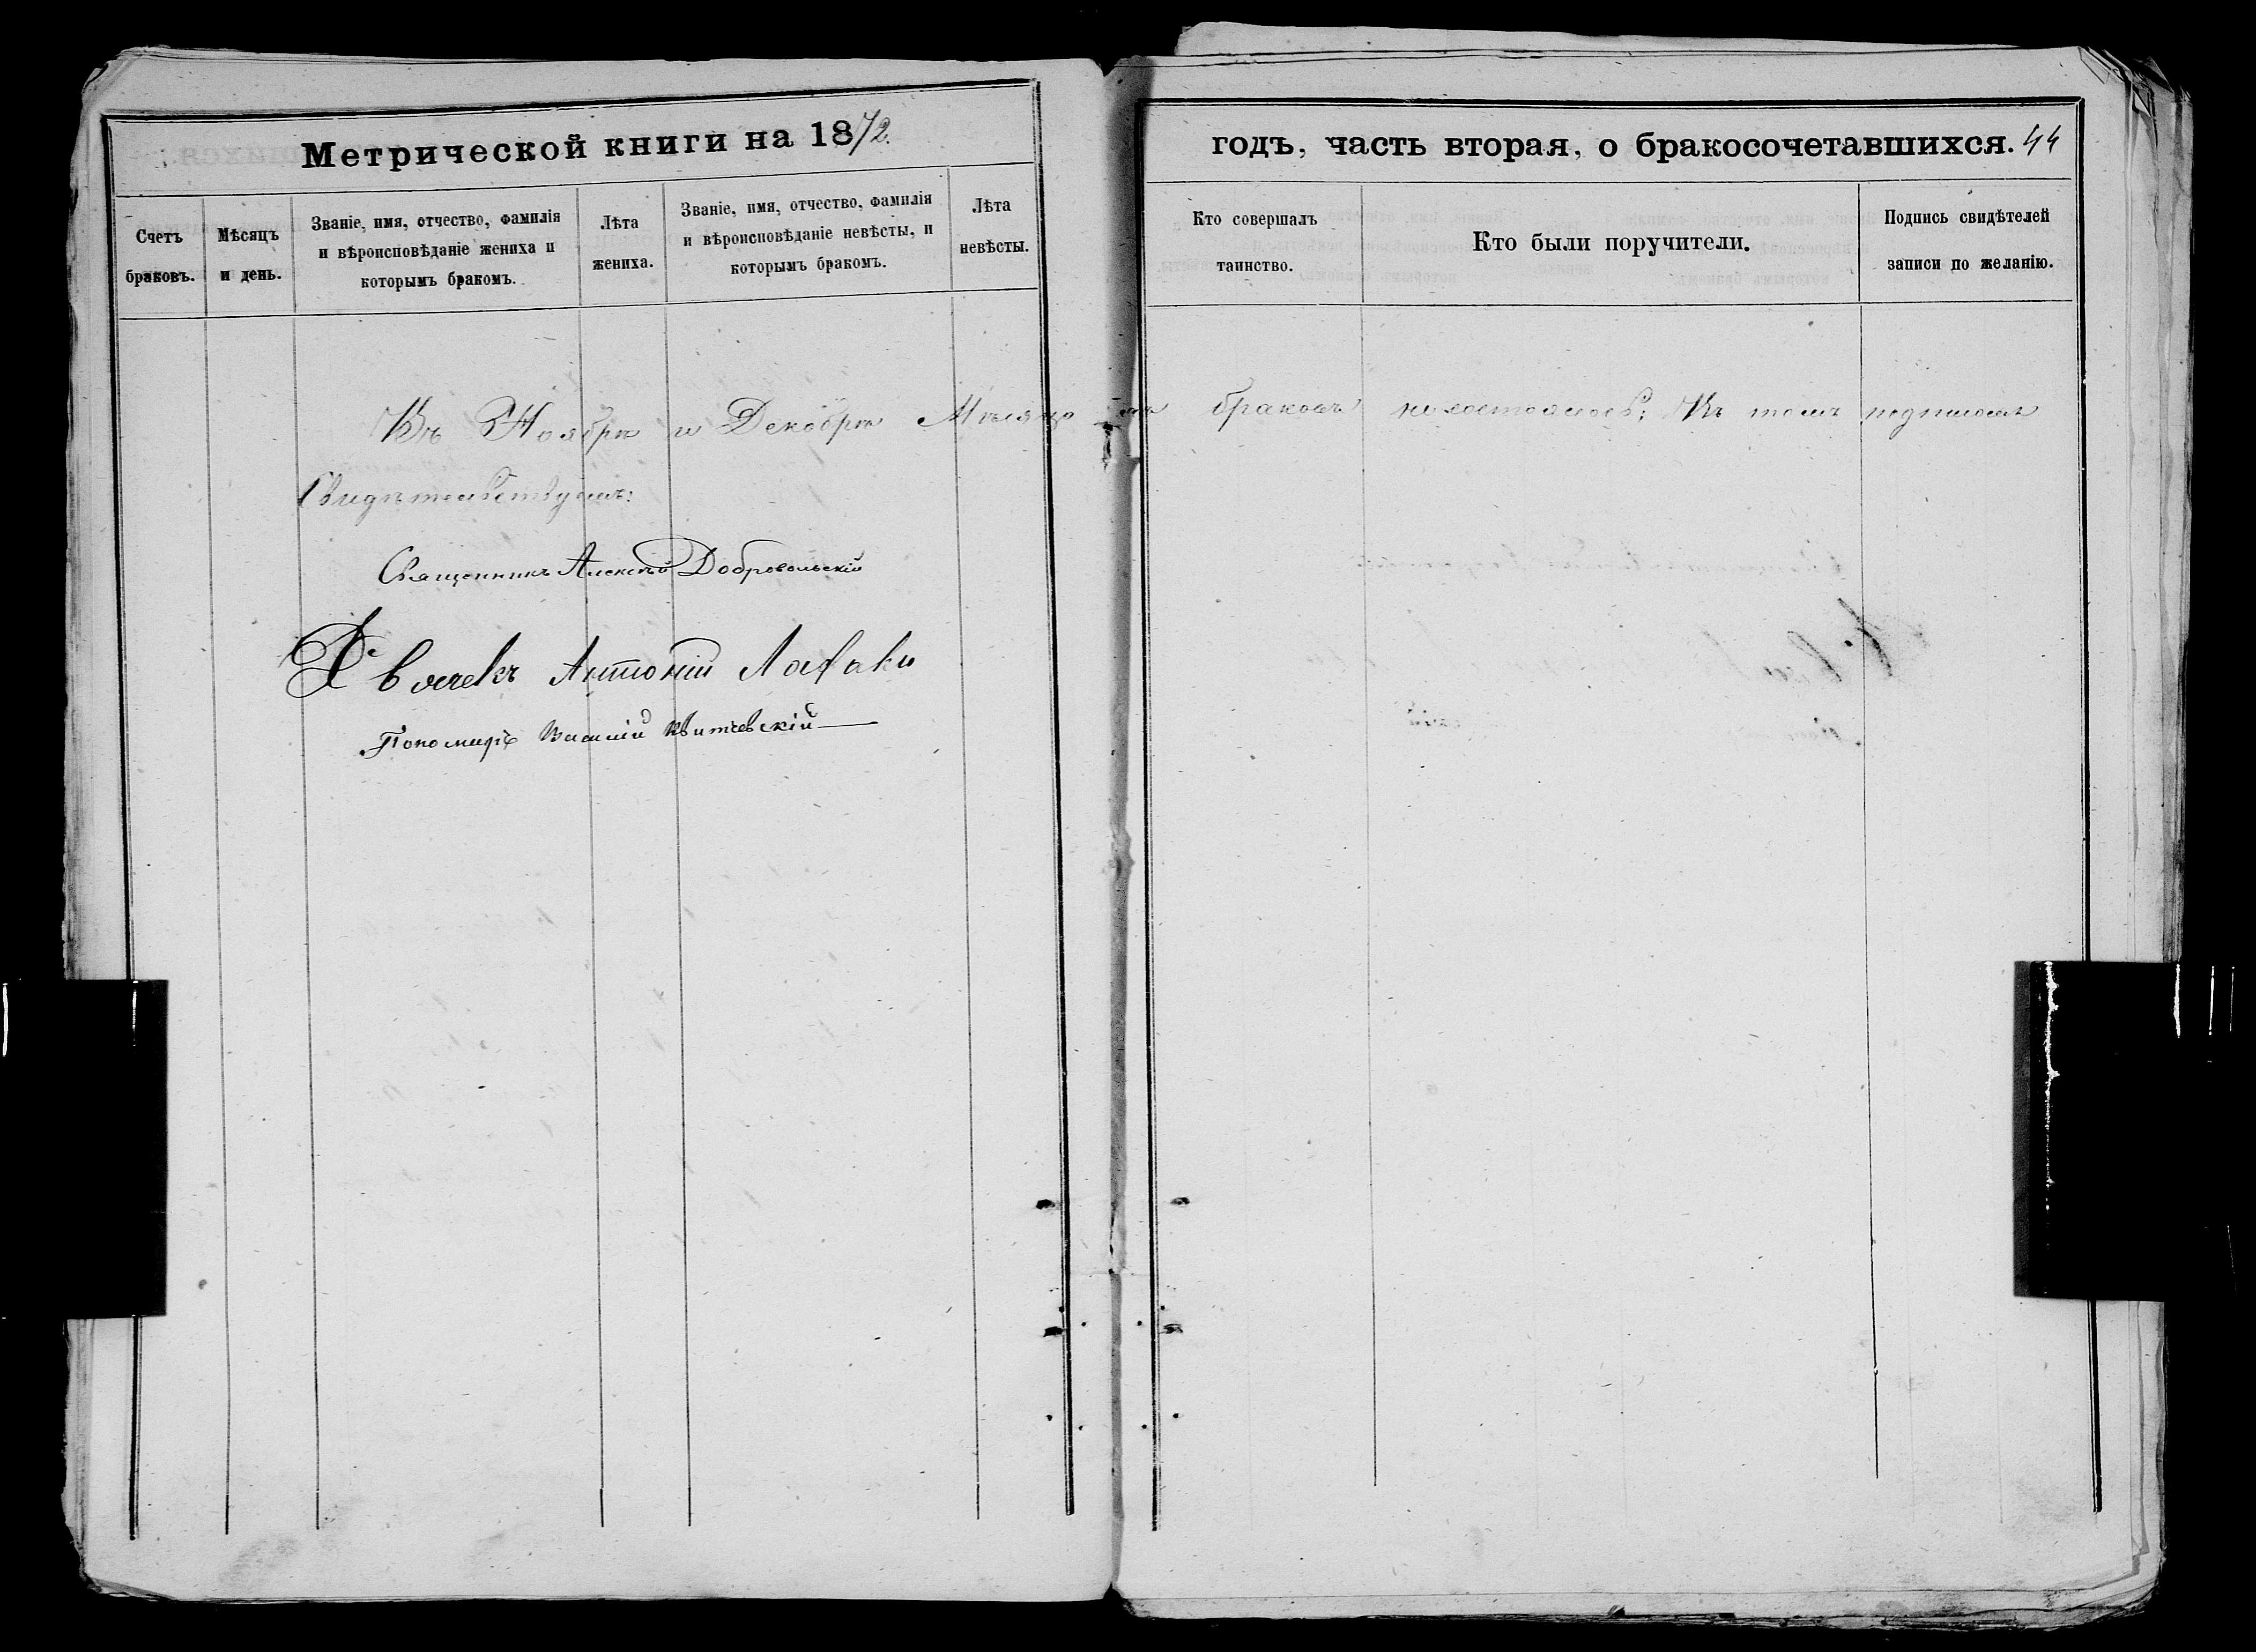 Метрической книги на 1872. годъ, часть вторая, о бракосочетавшихся. 44
Счетъ браковъ.
Мѣсяцъ и день.
Званіе, имя, отчество, фамилія и вѣроисповѣданіе жениха и которымъ бракомъ.
Лѣта жениха.
Званіе, имя, отчество, фамилія и вѣроисповѣданіе невѣсты, и которымъ бракомъ.
Лѣта невѣсты.
Кто совершалъ таинство.
Кто были поручители.
Подпись свидѣтелей записи по желанію.
Въ Ноябрѣ и Декабрѣ Мѣсяцахъ браковъ несостоялось; Въ томъ подписомъ
Свидѣтельствуемъ:
Священникъ Алексѣй Добровольскій
Дьячекъ Антоній
Пономарь Василій Квитчевскій